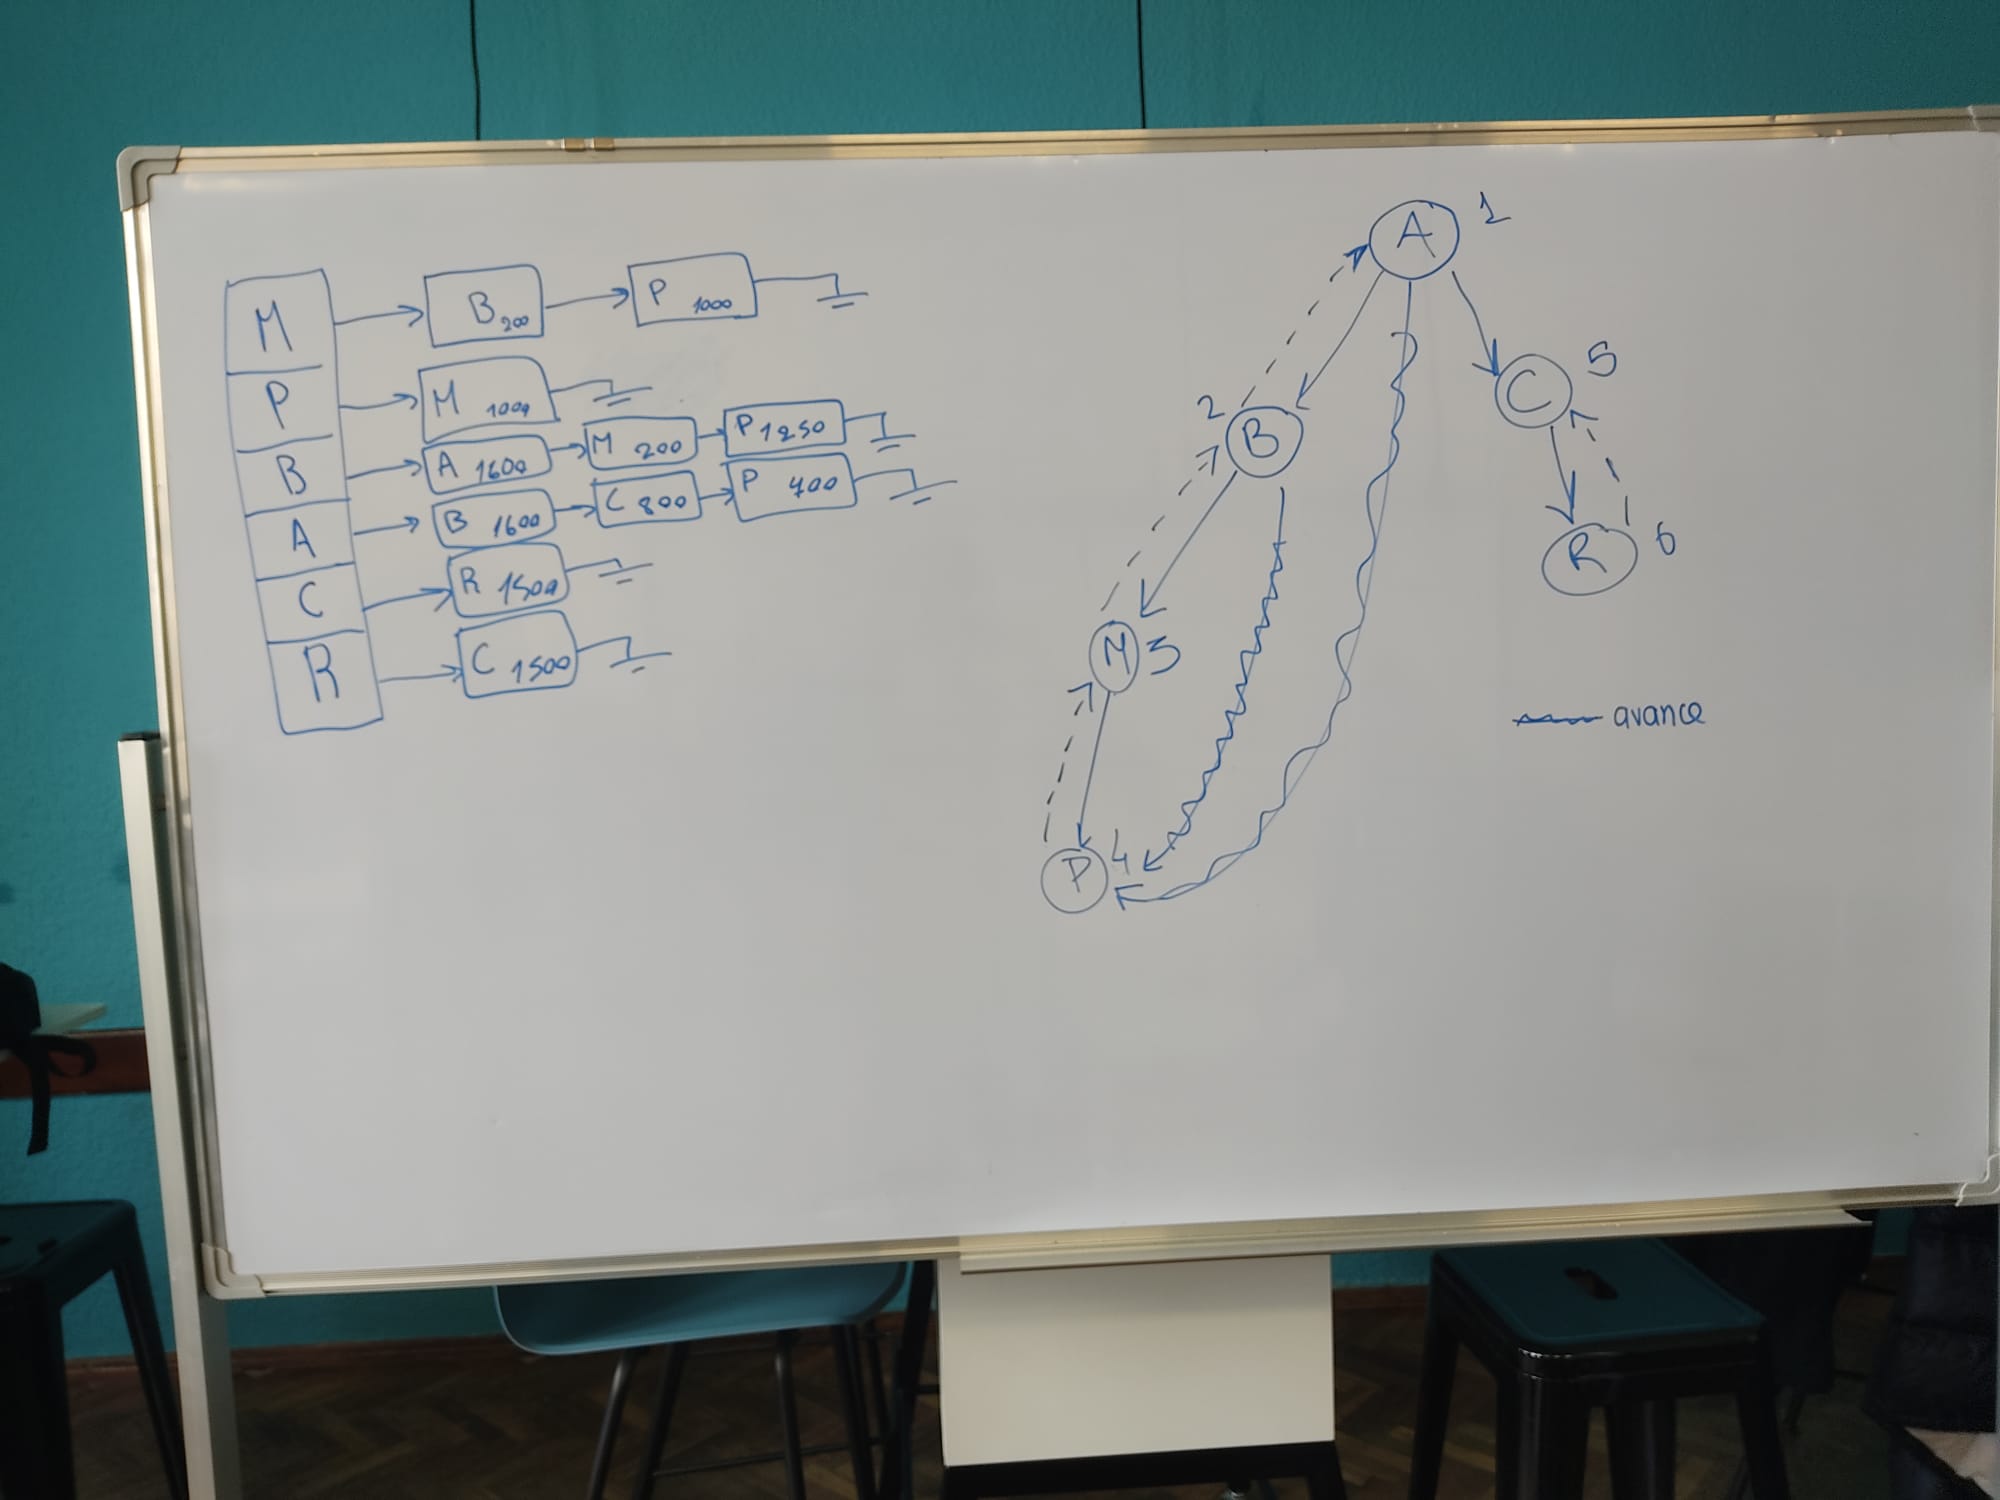 M B 200 P 1000
P M 1000
B A 1600 M 200 P 1250
A B 1600 C 800 P 400
C R 1500
R C 1500
A 1
2 B
C 5
R 6
M 3
P 4
avance